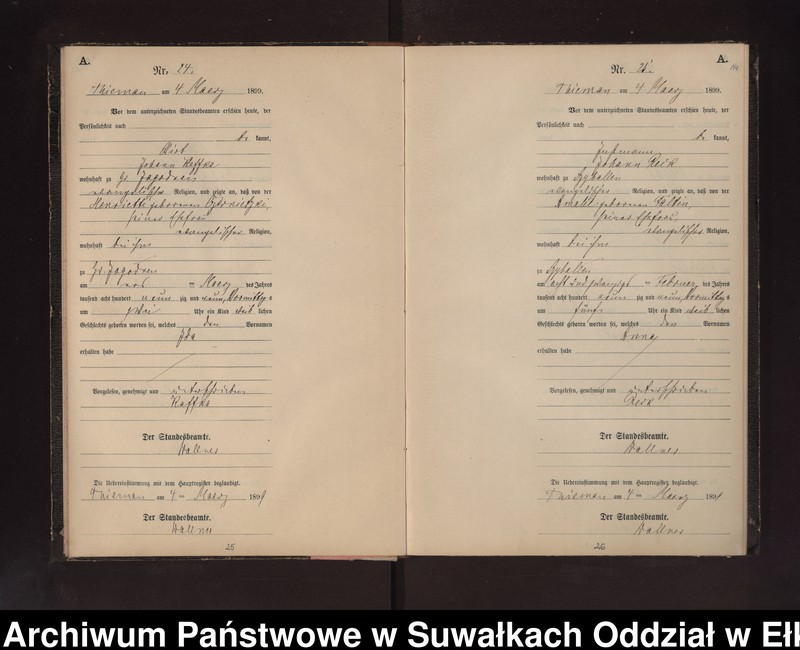 A.
Nr. 24.
am 4 Maerz 1899.
Vor dem unterzeichneten Standesbeamten erschien heute, der
Persönlichkeit nach
be kannt,
Wirt
Johann Kaffka
wohnhaft zu Gr. Jagodnen
evangelischer Religion, und zeigte an, daß von der
Henriette geborenen
seiner Ehefrau
evangelischer Religion,
wohnhaft bei ihm
zu Gr. Jagodnen
am ten Maerz des Jahres
tausend acht hundert neun zig und neun, Vormittags
um zwei Uhr ein Kind weib lichen
Geschlechts geboren worden sei, welches den Vornamen
Ida
erhalten habe
Vorgelesen, genehmigt und unterschrieben
Kaffka
Der Standesbeamte.
Wallner
Die Uebereinstimmung mit dem Hauptregister beglaubigt.
am 4 ten Maerz 1899
Der Standesbeamte.
Wallner
25
A.
Nr. 25.
am 4 Maerz 1899.
Vor dem unterzeichneten Standesbeamten erschien heute, der
Persönlichkeit nach
be kannt,
Instmann
Johann Reik
wohnhaft zu
evangelischer Religion, und zeigte an, daß von der
Amalie geborenen
seiner Ehefrau,
evangelischer Religion,
wohnhaft bei ihm
zu
am acht und zwanzigsten Februar des Jahres
tausend acht hundert neun zig und neun, Vormittags
um fünf Uhr ein Kind weib lichen
Geschlechts geboren worden sei, welches den Vornamen
Anna
erhalten habe
Vorgelesen, genehmigt und unterschrieben
Reik
Der Standesbeamte.
Wallner
Die Uebereinstimmung mit dem Hauptregister beglaubigt.
am 4 ten Maerz 1899
Der Standesbeamte.
Wallner
26
Archiwum Państwowe w Suwałkach Oddział w Ełk